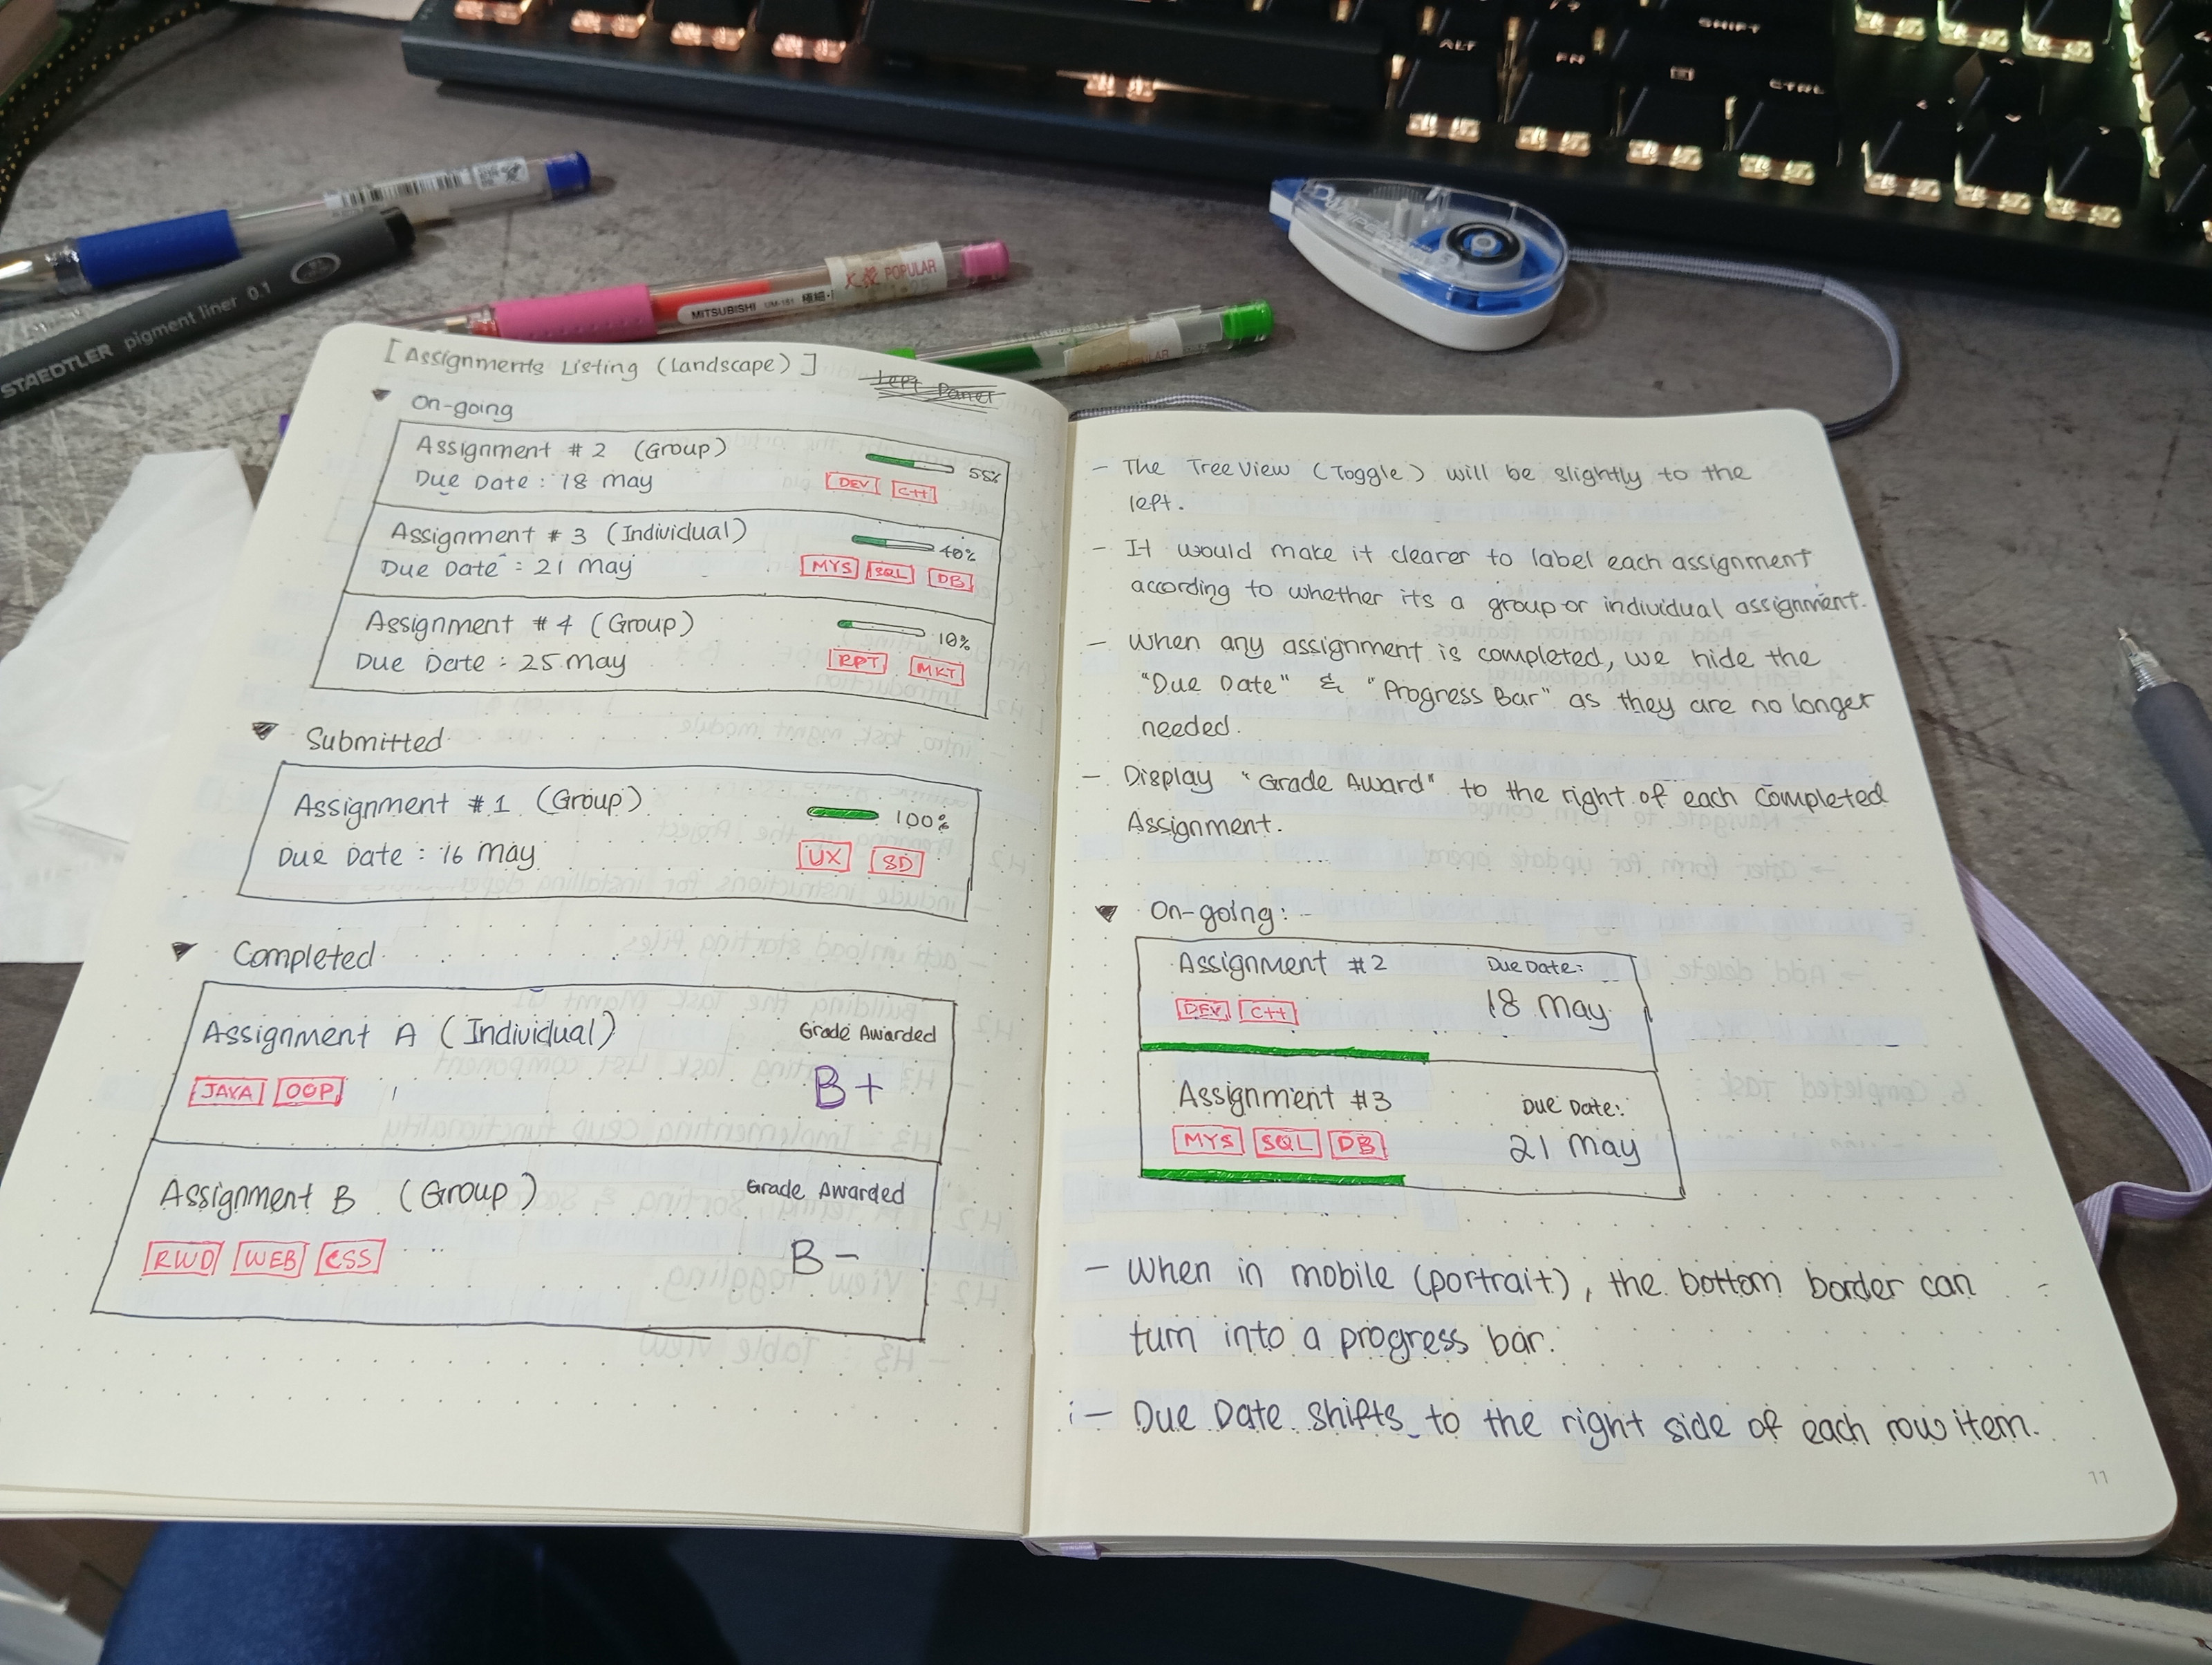 ALT
FN
SHIFT
CTRL
STAEDTLER pigment liner 0.1
MITSUBISHI UM-151 極細
POPULAR
POPULAR
[Assignments Listing (Landscape)]
On-going
Assignment #2 (Group)
55%
Due Date : 18 may
DEV C++
Assignment #3 (Individual)
40%
Due Date : 21 may
MYS SQL DB
Assignment #4 (Group)
10%
Due Date : 25 may
RPT MKT
Submitted
Assignment #1 (Group)
100%
Due Date : 16 may
UX SD
Completed
Assignment A (Individual)
Grade Awarded
JAVA OOP
B+
Assignment B (Group)
Grade Awarded
RWD WEB CSS
B-
- The TreeView (Toggle) will be slightly to the
left.
- It would make it clearer to label each assignment
according to whether its a group or individual assignment.
- When any assignment is completed, we hide the
"Due Date" & "Progress Bar" as they are no longer
needed.
- Display "Grade Award" to the right of each completed
Assignment.
On-going:
Assignment #2
Due Date:
DEV C++
18 May
Assignment #3
Due Date:
MYS SQL DB
21 May
- When in mobile (portrait), the bottom border can
turn into a progress bar.
- Due Date shifts to the right side of each row item.
11